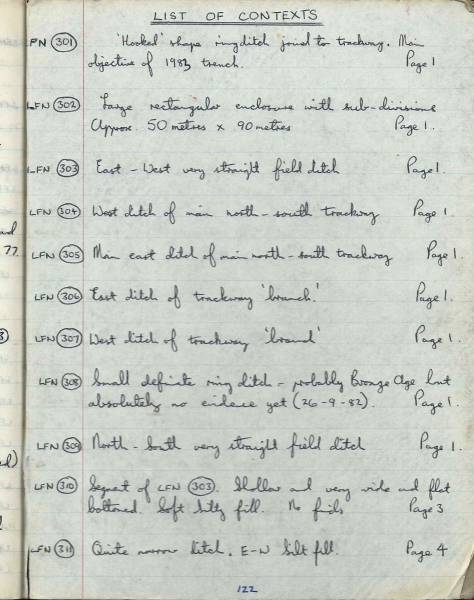 LIST OF CONTEXTS
FN 301 'Hooked' shape ringditch joined to trackway. Main
objective of 1983 trench. Page 1
LFN 302 Large rectangular enclosure with sub-divisions
Approx. 50 metres x 90 metres Page 1.
LFN 303 East - West very straight field ditch Page 1.
LFN 304 West ditch of main north - south trackway Page 1.
LFN 305 Main east ditch of main north - south trackway Page 1.
LFN 306 East ditch of trackway 'branch.' Page 1.
LFN 307 West ditch of trackway 'branch' Page 1.
LFN 308 Small definite ring ditch - probably Bronze Age but
absolutely no evidence yet (26-9-82). Page 1.
LFN 309 North - South very straight field ditch Page 1.
LFN 310 Segment of LFN 303. Shallow and very wide and flat
bottomed. Soft silty fill. No finds Page 3
LFN 311 Quite narrow ditch. E-W Silt fill. Page 4
122
77